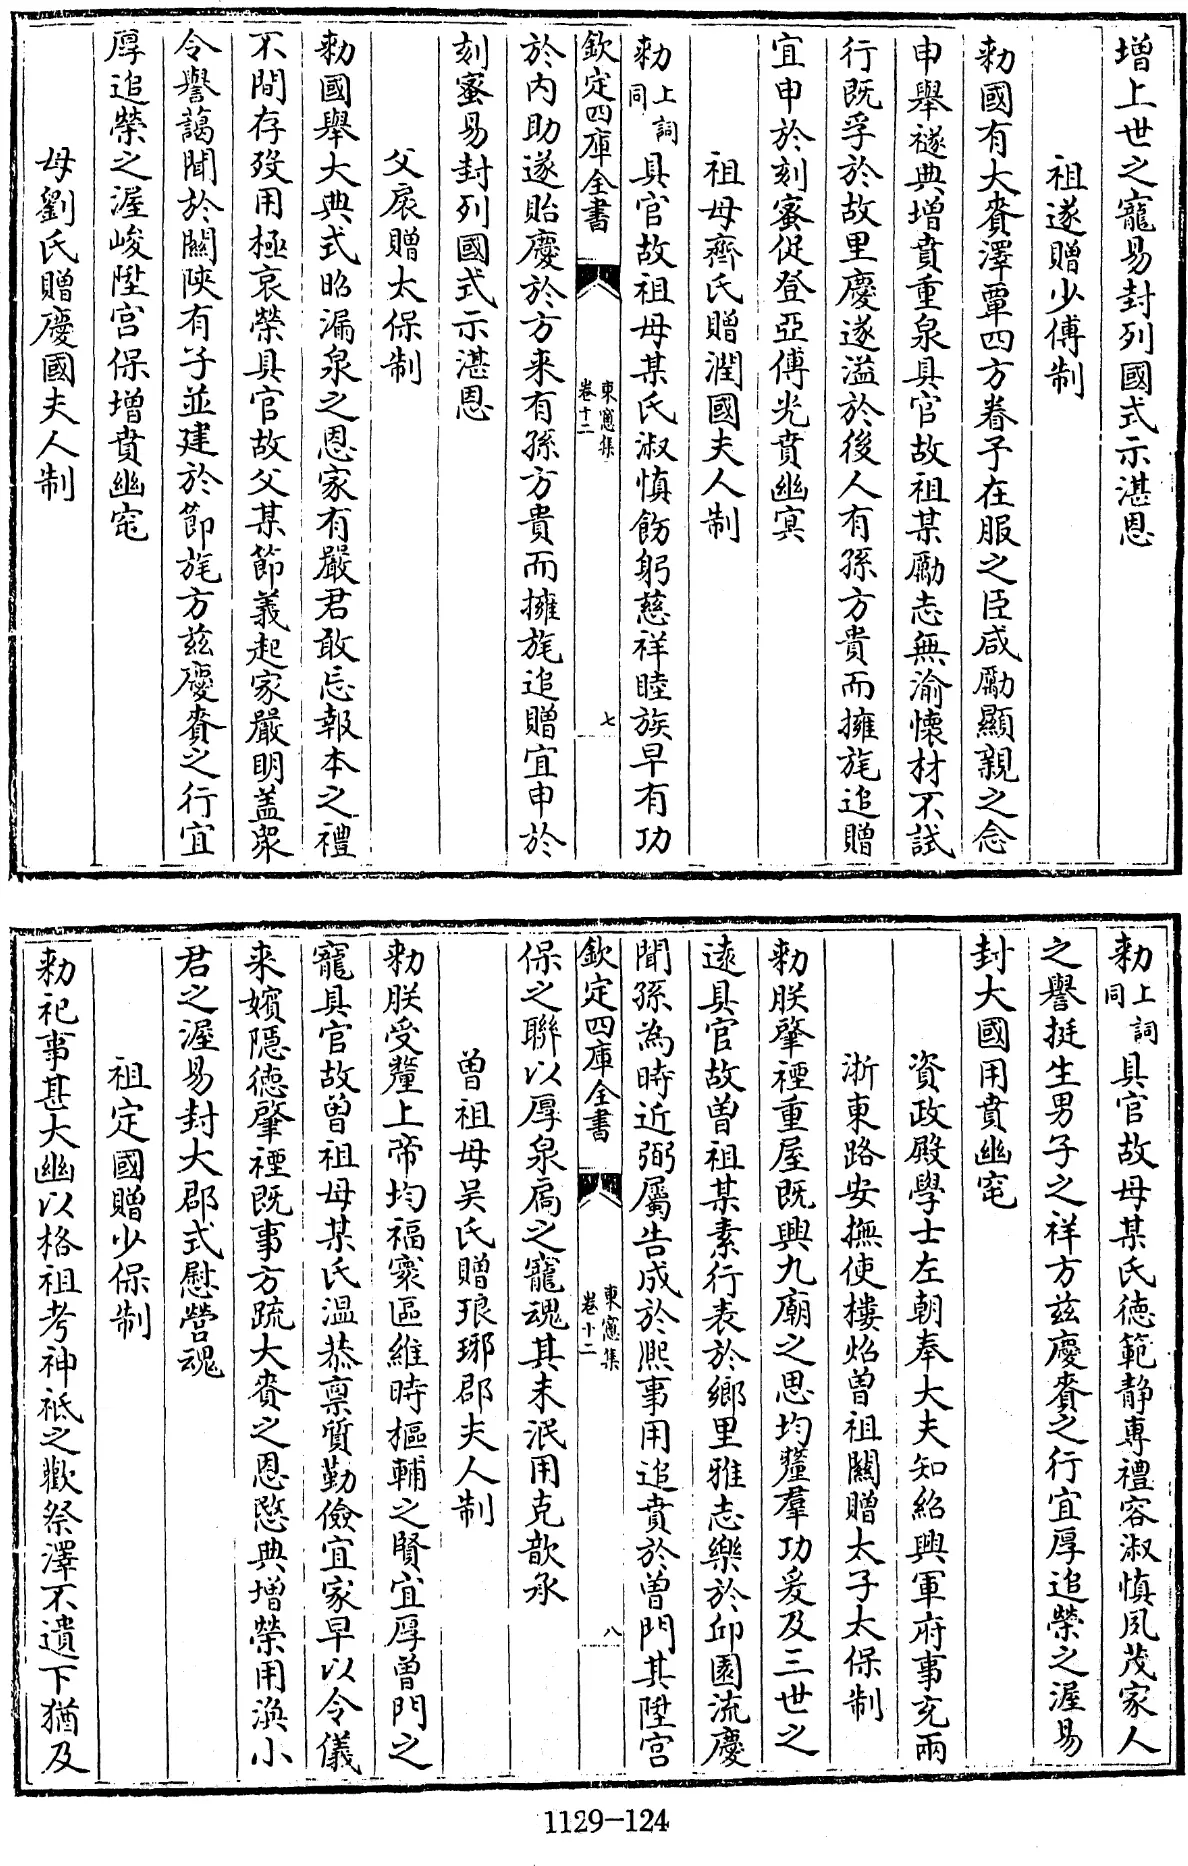 增上世之寵易封列國式示湛恩
祖遂贈少傅制
勑國有大賚澤覃四方眷予在服之臣咸勵顯親之念
申舉襚典增賁重泉具官故祖某勵志無渝懷材不試
行既孚於故里慶遂溢於後人有孫方貴而擁旄追贈
宜申於刻蜜促登亞傅光賁幽㝠
祖母齊氏贈潤國夫人制
勑上詞同具官故祖母某氏淑慎飭躬慈祥睦族早有功
欽定四庫全書
東窻集
卷十二
七
於内助遂貽慶於方来有孫方貴而擁旄追贈宜申於
刻蜜易封列國式示湛恩
父扆贈太保制
勑國舉大典式昭漏泉之恩家有嚴君敢忘報本之禮
不間存歿用極哀榮具官故父某節義起家嚴明蓋衆
令譽藹聞於關陜有子並建於節旄方兹慶賚之行宜
厚追榮之渥峻陞宫保增賁幽窀
母劉氏贈慶國夫人制
勑上詞同具官故母某氏徳範静専禮容淑慎夙茂家人
之譽挺生男子之祥方兹慶賚之行宜厚追榮之渥易
封大國用賁幽窀
資政殿學士左朝奉大夫知紹興軍府事充兩
浙東路安撫使樓炤曽祖闗贈太子太保制
勑朕肇禋重屋既興九廟之思均釐羣功爰及三世之
逺具官故曽祖某素行表於鄉里雅志樂於邱園流慶
聞孫為時近弼屬告成於熈事用追賁於曽門其陞宫
欽定四庫全書
東窻集
卷十二
八
保之聯以厚泉扃之寵魂其未泯用克歆承
曽祖母吴氏贈琅琊郡夫人制
勑朕受釐上帝均福寰區維時樞輔之賢宜厚曽門之
寵具官故曽祖母某氏温恭禀質勤儉宜家早以令儀
来嬪隱徳肇禋既事方疏大賚之恩愍典增榮用渙小
君之渥易封大郡式慰營魂
祖定國贈少保制
勑祀事甚大幽以格祖考神祗之歡祭澤不遺下猶及
1129-124